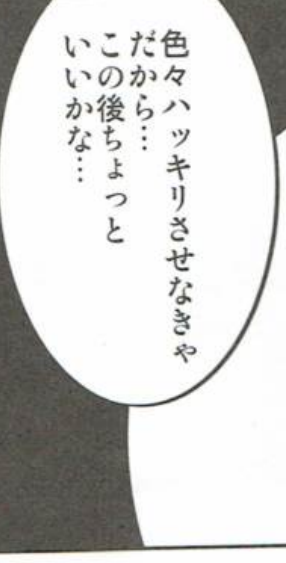 色々ハッキリさせなきゃ
だから…
この後ちょっと
いいかな…